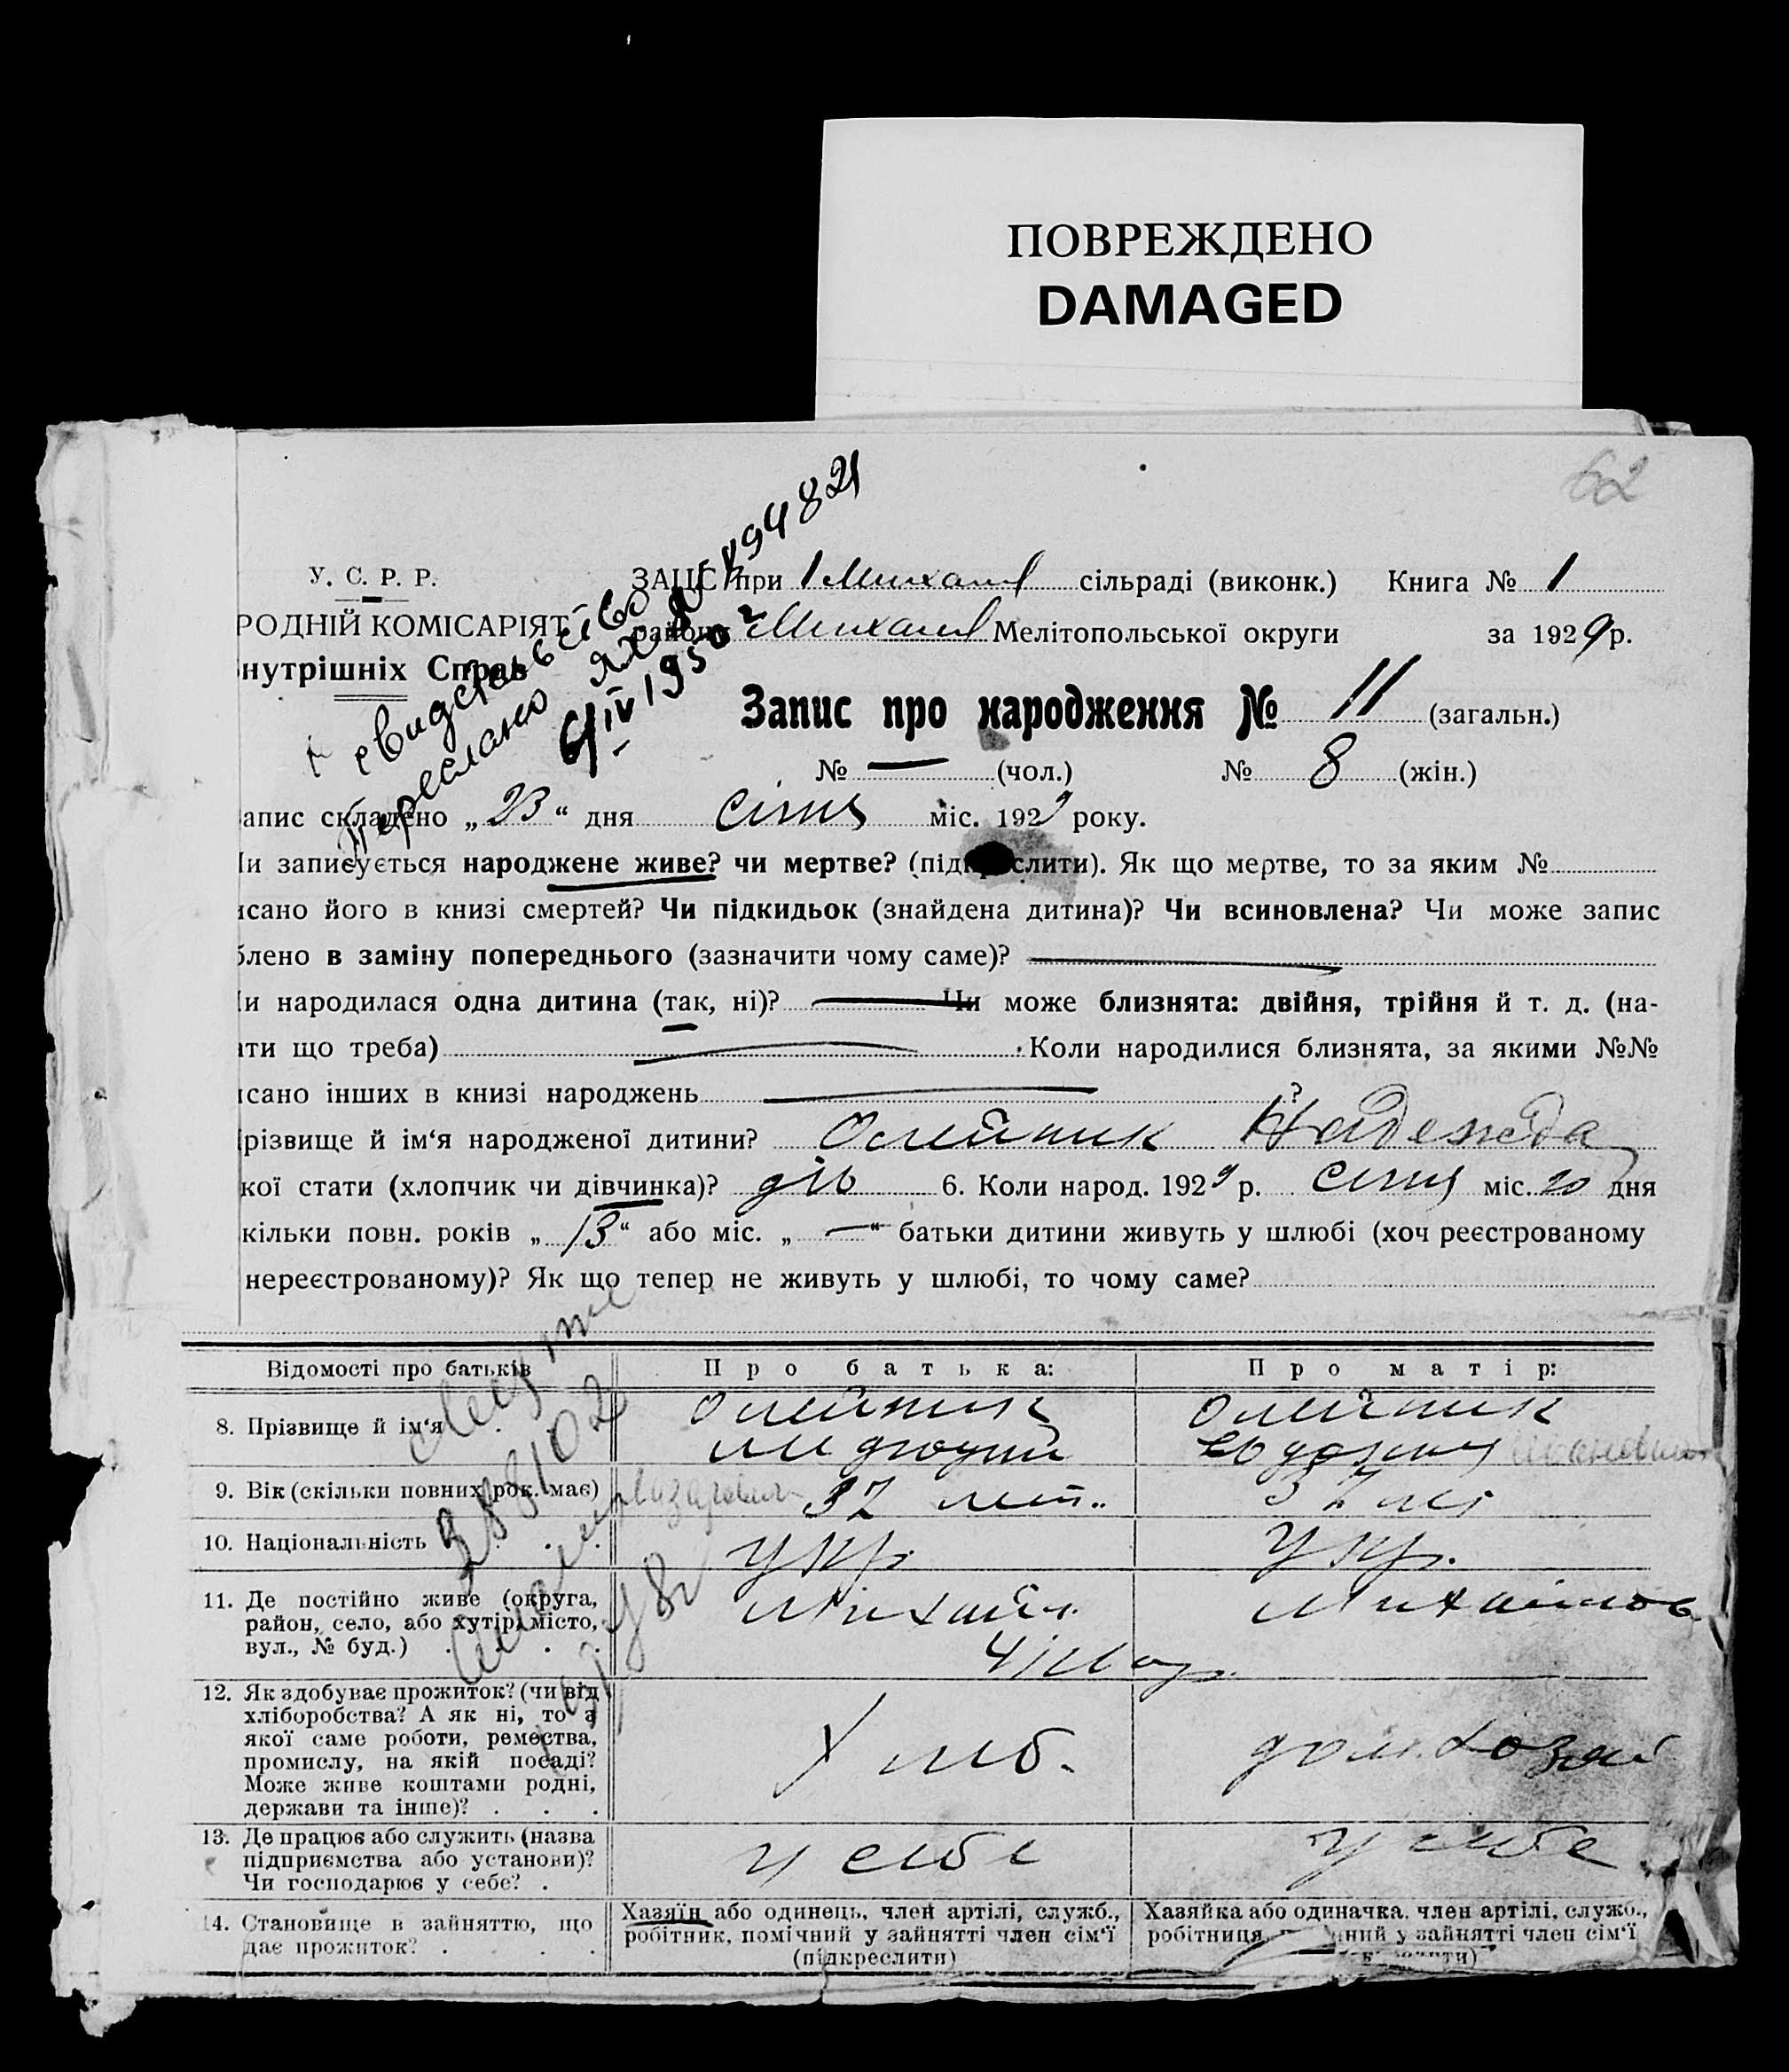 ПОВРЕЖДЕНО
DAMAGED
62
У. С. Р. Р.
ЗАЦС при 1 Михайл сільраді (виконк.) Книга № 1
РОДНІЙ КОМІСАРІЯТ
району Михайл Мелітопольської округи за 1929 р.
нутрішніх Справ
свидетельство
переслано ЯХ № 494821
4/IV 1950 г
Запис про народження № 11 (загальн.)
№ — (чол.) № 8 (жін.)
апис складено „23“ дня січня міс. 1929 року.
и записується народжене живе? чи мертве? (підкреслити). Як що мертве, то за яким №
исано його в книзі смертей? Чи підкидьок (знайдена дитина)? Чи всиновлена? Чи може запис
блено в заміну попереднього (зазначити чому саме)?
и народилася одна дитина (так, ні)? Чи може близнята: двійня, трійня й т. д. (на-
ти що треба) Коли народилися близнята, за якими №№
исано інших в книзі народжень ?
різвище й ім‘я народженої дитини? Олейник Надежда
кої стати (хлопчик чи дівчинка)? дів 6. Коли народ. 1929 р. січня міс. 20 дня
кільки повн. років „13“ або міс. „—“ батьки дитини живуть у шлюбі (хоч реєстрованому
нереєстрованому)? Як що тепер не живуть у шлюбі, то чому саме?
Відомості про батьків Про батька: Про матір:
8. Прізвище й ім‘я Олейник Олейник
9. Вік (скільки повних рок. має) 37 лет. 37 лет
10. Національність укр. укр.
11. Де постійно живе (округа, район, село, або хутір, місто, вул., № буд.) Михайл. Михайлов
12. Як здобуває прожиток? (чи від хліборобства? А як ні, то з якої саме роботи, ремества, промислу, на якій посаді? Може живе коштами родні, держави та інше)? Хліб. дом. хозяй
13. Де працює або служить (назва підприємства або установи)? Чи господарює у себе? у себе у себе
14. Становище в зайняттю, що дає прожиток?
Хазяїн або одинець, член артілі, служб., робітник, помічний у зайнятті член сім‘ї (підкреслити)
Хазяйка або одиначка, член артілі, служб., робітниця, у зайнятті член сім‘ї